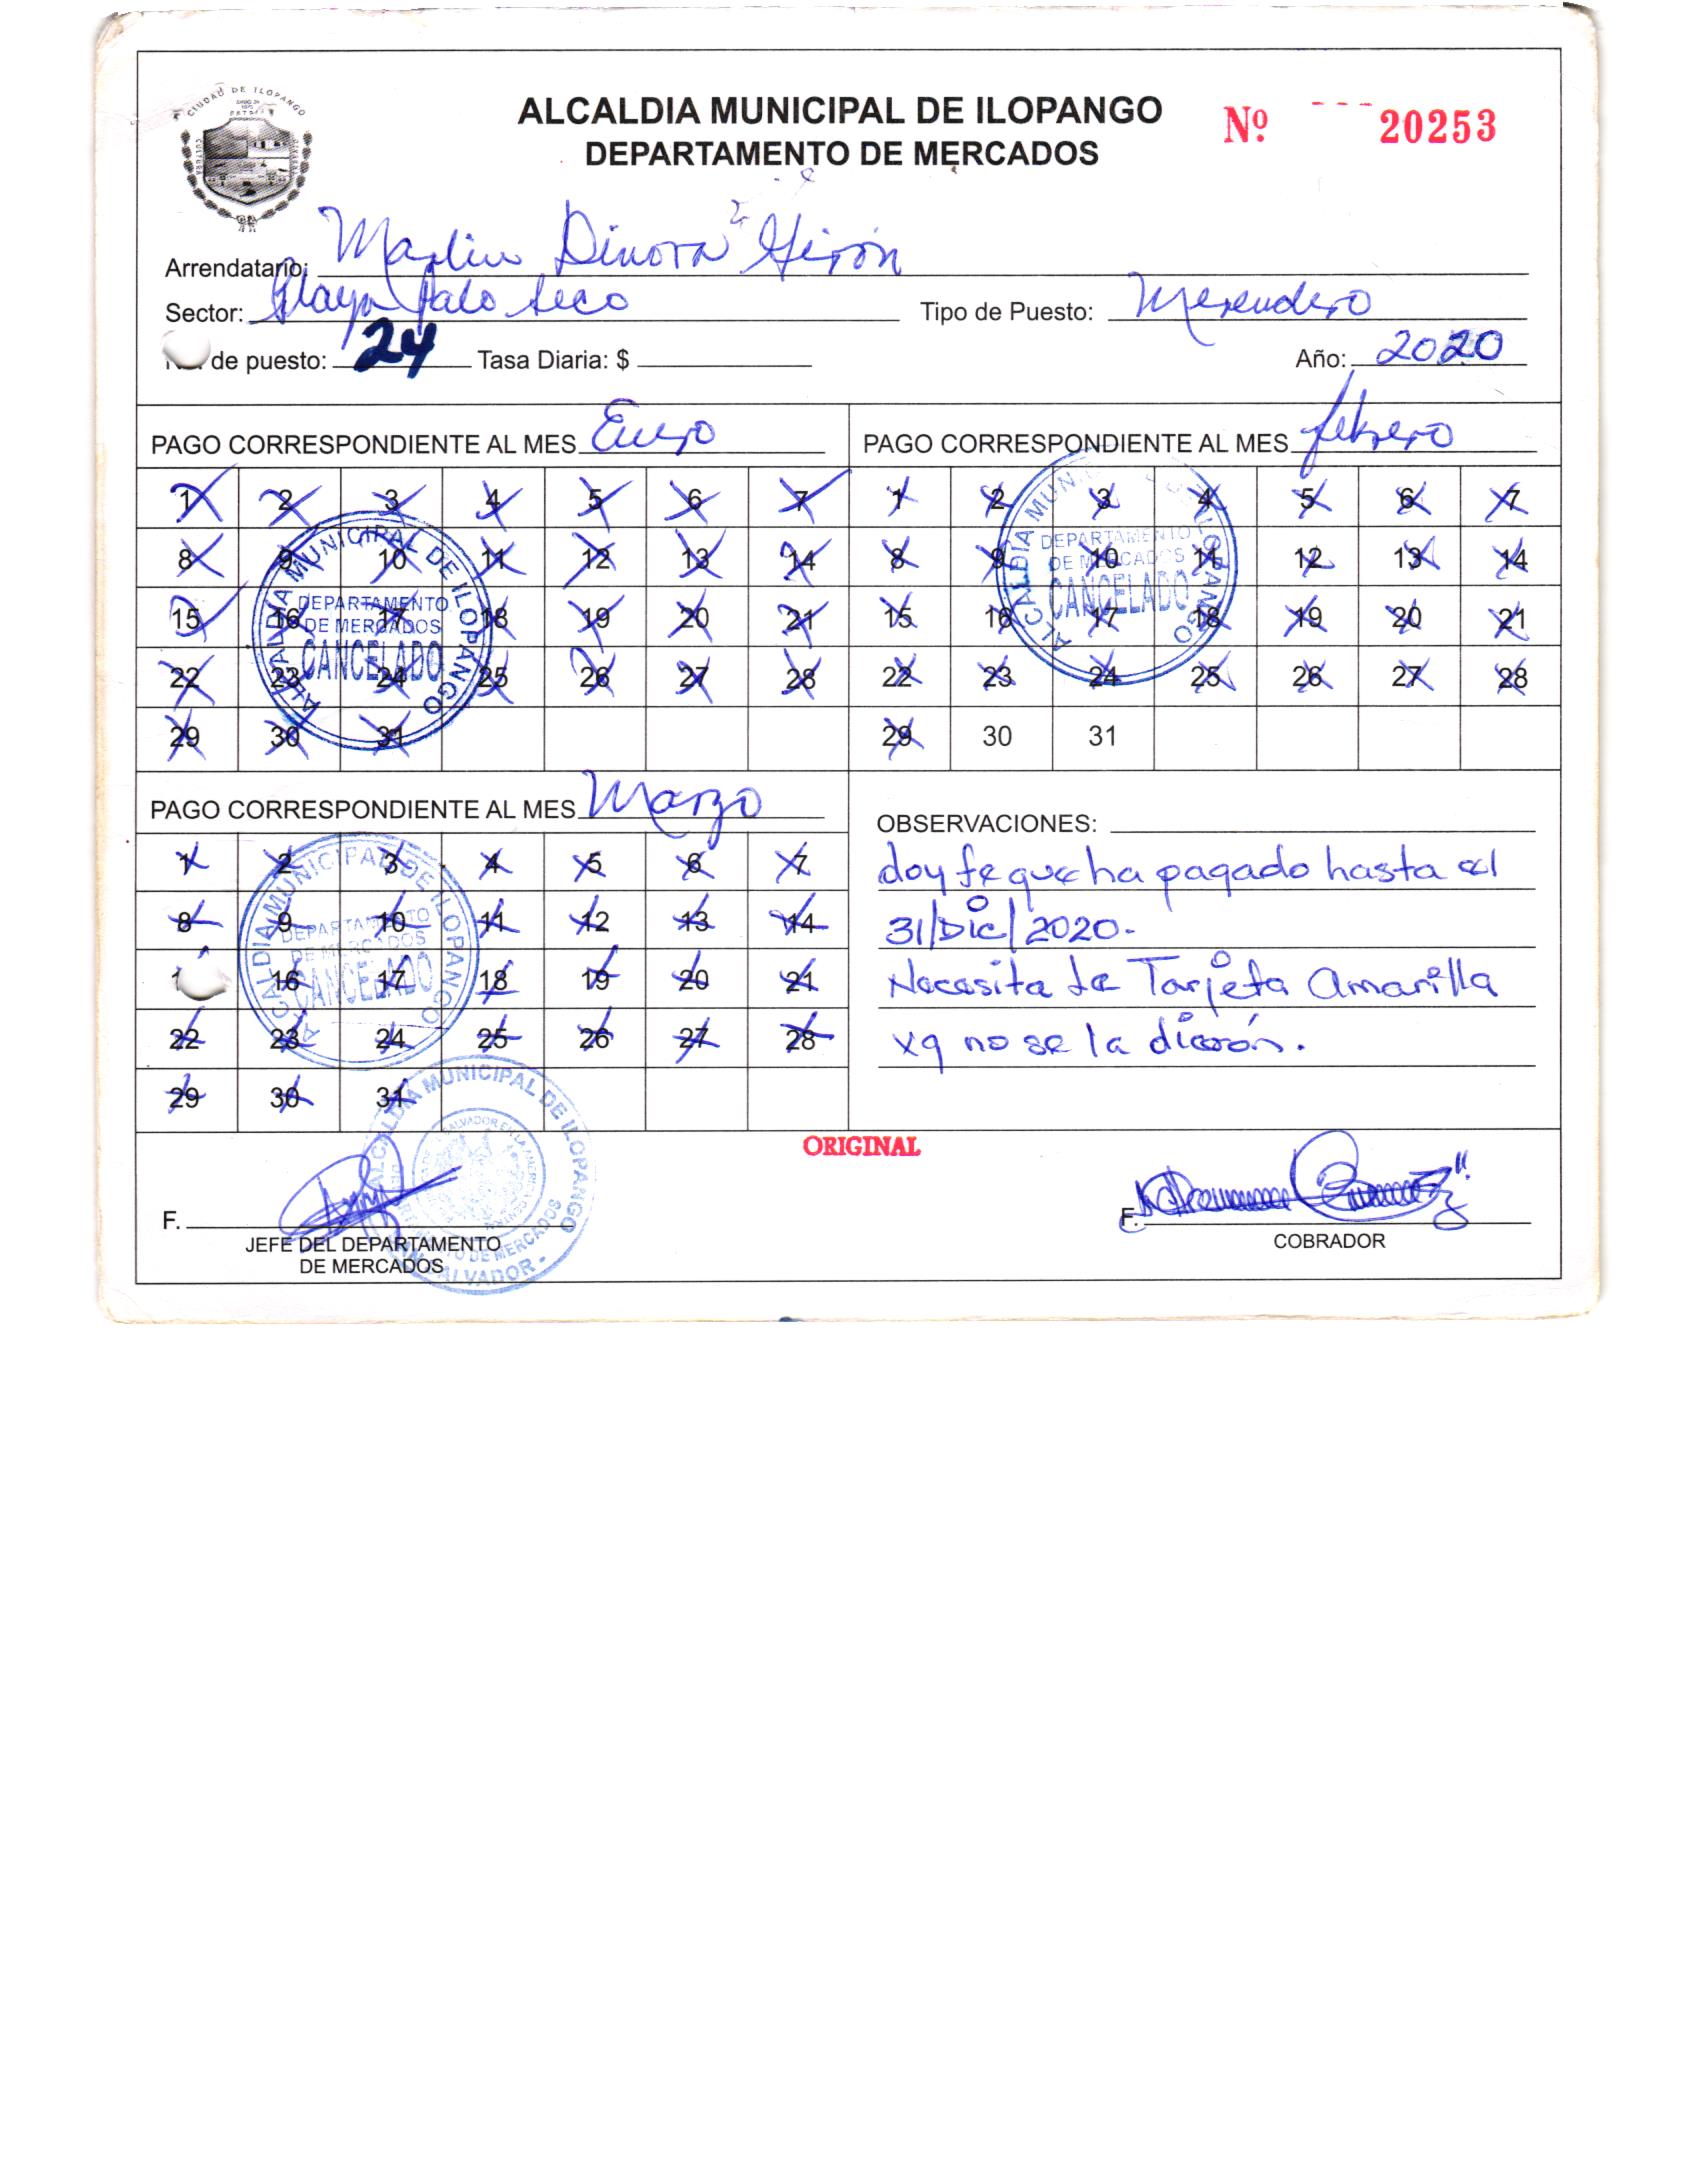 CIUDAD DE ILOPANGO
ALCALDIA MUNICIPAL DE ILOPANGO
DEPARTAMENTO DE MERCADOS
Nº 20253
Arrendatario: Marlin Dinora Girón
Sector: Playa Palo Seco Tipo de Puesto: Merendero
de puesto: 24 Tasa Diaria: $ Año: 2020
PAGO CORRESPONDIENTE AL MES Enero
1 2 3 4 5 6 7
8 9 10 11 12 13 14
15 16 17 18 19 20 21
22 23 24 25 26 27 28
29 30 31
ALCALDIA MUNICIPAL DE ILOPANGO
DEPARTAMENTO
DE MERCADOS
CANCELADO
PAGO CORRESPONDIENTE AL MES febrero
1 2 3 4 5 6 7
8 9 10 11 12 13 14
15 16 17 18 19 20 21
22 23 24 25 26 27 28
29 30 31
ALCALDIA MUNICIPAL DE ILOPANGO
DEPARTAMENTO
DE MERCADOS
CANCELADO
PAGO CORRESPONDIENTE AL MES Marzo
1 2 3 4 5 6 7
8 9 10 11 12 13 14
16 17 18 19 20 21
22 23 24 25 26 27 28
29 30 31
ALCALDIA MUNICIPAL DE ILOPANGO
DEPARTAMENTO
DE MERCADOS
CANCELADO
OBSERVACIONES:
doy fe que ha pagado hasta el
31/Dic/2020.
Necesita la Tarjeta Amarilla
xq no se la dierón.
ORIGINAL
F.
JEFE DEL DEPARTAMENTO
DE MERCADOS
ALCALDIA MUNICIPAL DE ILOPANGO
F.
COBRADOR